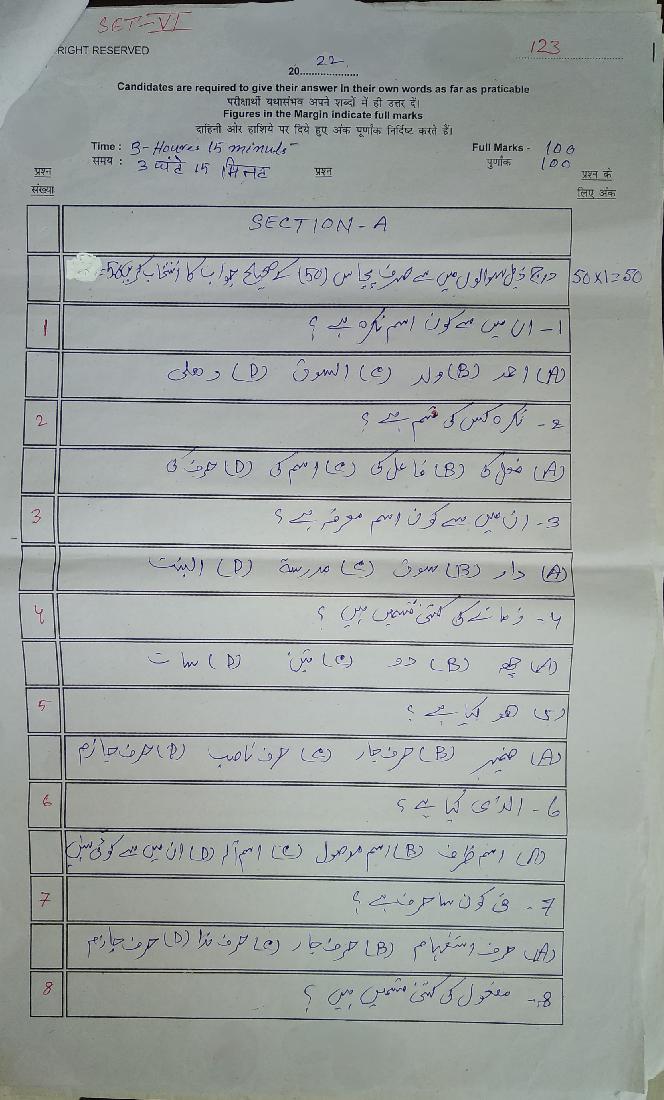 SET-VI
RIGHT RESERVED
123
2022
Candidates are required to give their answer in their own words as far as praticable
परीक्षार्थी यथासंभव अपने शब्दों में ही उत्तर दें।
Figures in the Margin indicate full marks
दाहिनी ओर हाशिये पर दिये हुए अंक पूर्णांक निर्दिष्ट करते हैं।
Time : 3-Houres 15 minuts Full Marks - 100
समय : 3 घंटे 15 मिनट पूर्णांक 100
प्रश्न संख्या प्रश्न प्रश्न के लिए अंक
SECTION-A
درج ذیل سوالوں میں سے صرف پچاس (50) کے صحیح جواب کا انتخاب کریں 50x1=50
1 1- ان میں سے کون اسم نکرہ ہے ؟
(A) احمد (B) ولد (C) السوق (D) دھلی
2 2- نکرہ کس کی قسم ہے ؟
(A) فعل کی (B) فاعل کی (C) اسم کی (D) حرف کی
3 3- ان میں سے کون اسم معرفہ ہے ؟
(A) دار (B) سوق (C) مدرسة (D) البنت
4 4- زمانے کی کتنی قسمیں ہیں ؟
(A) چھ (B) دو (C) تین (D) سات
5 (5) ھو کیا ہے ؟
(A) ضمیر (B) حرف جار (C) حرف ناصب (D) حرف جازم
6 6- الذی کیا ہے ؟
(A) اسم ظرف (B) اسم موصول (C) اسم آلہ (D) ان میں سے کوئی نہیں
7 7- فی کون سا حرف ہے ؟
(A) حرف استفہام (B) حرف جار (C) حرف ندا (D) حرف جازم
8 8- مفعول کی کتنی قسمیں ہیں ؟